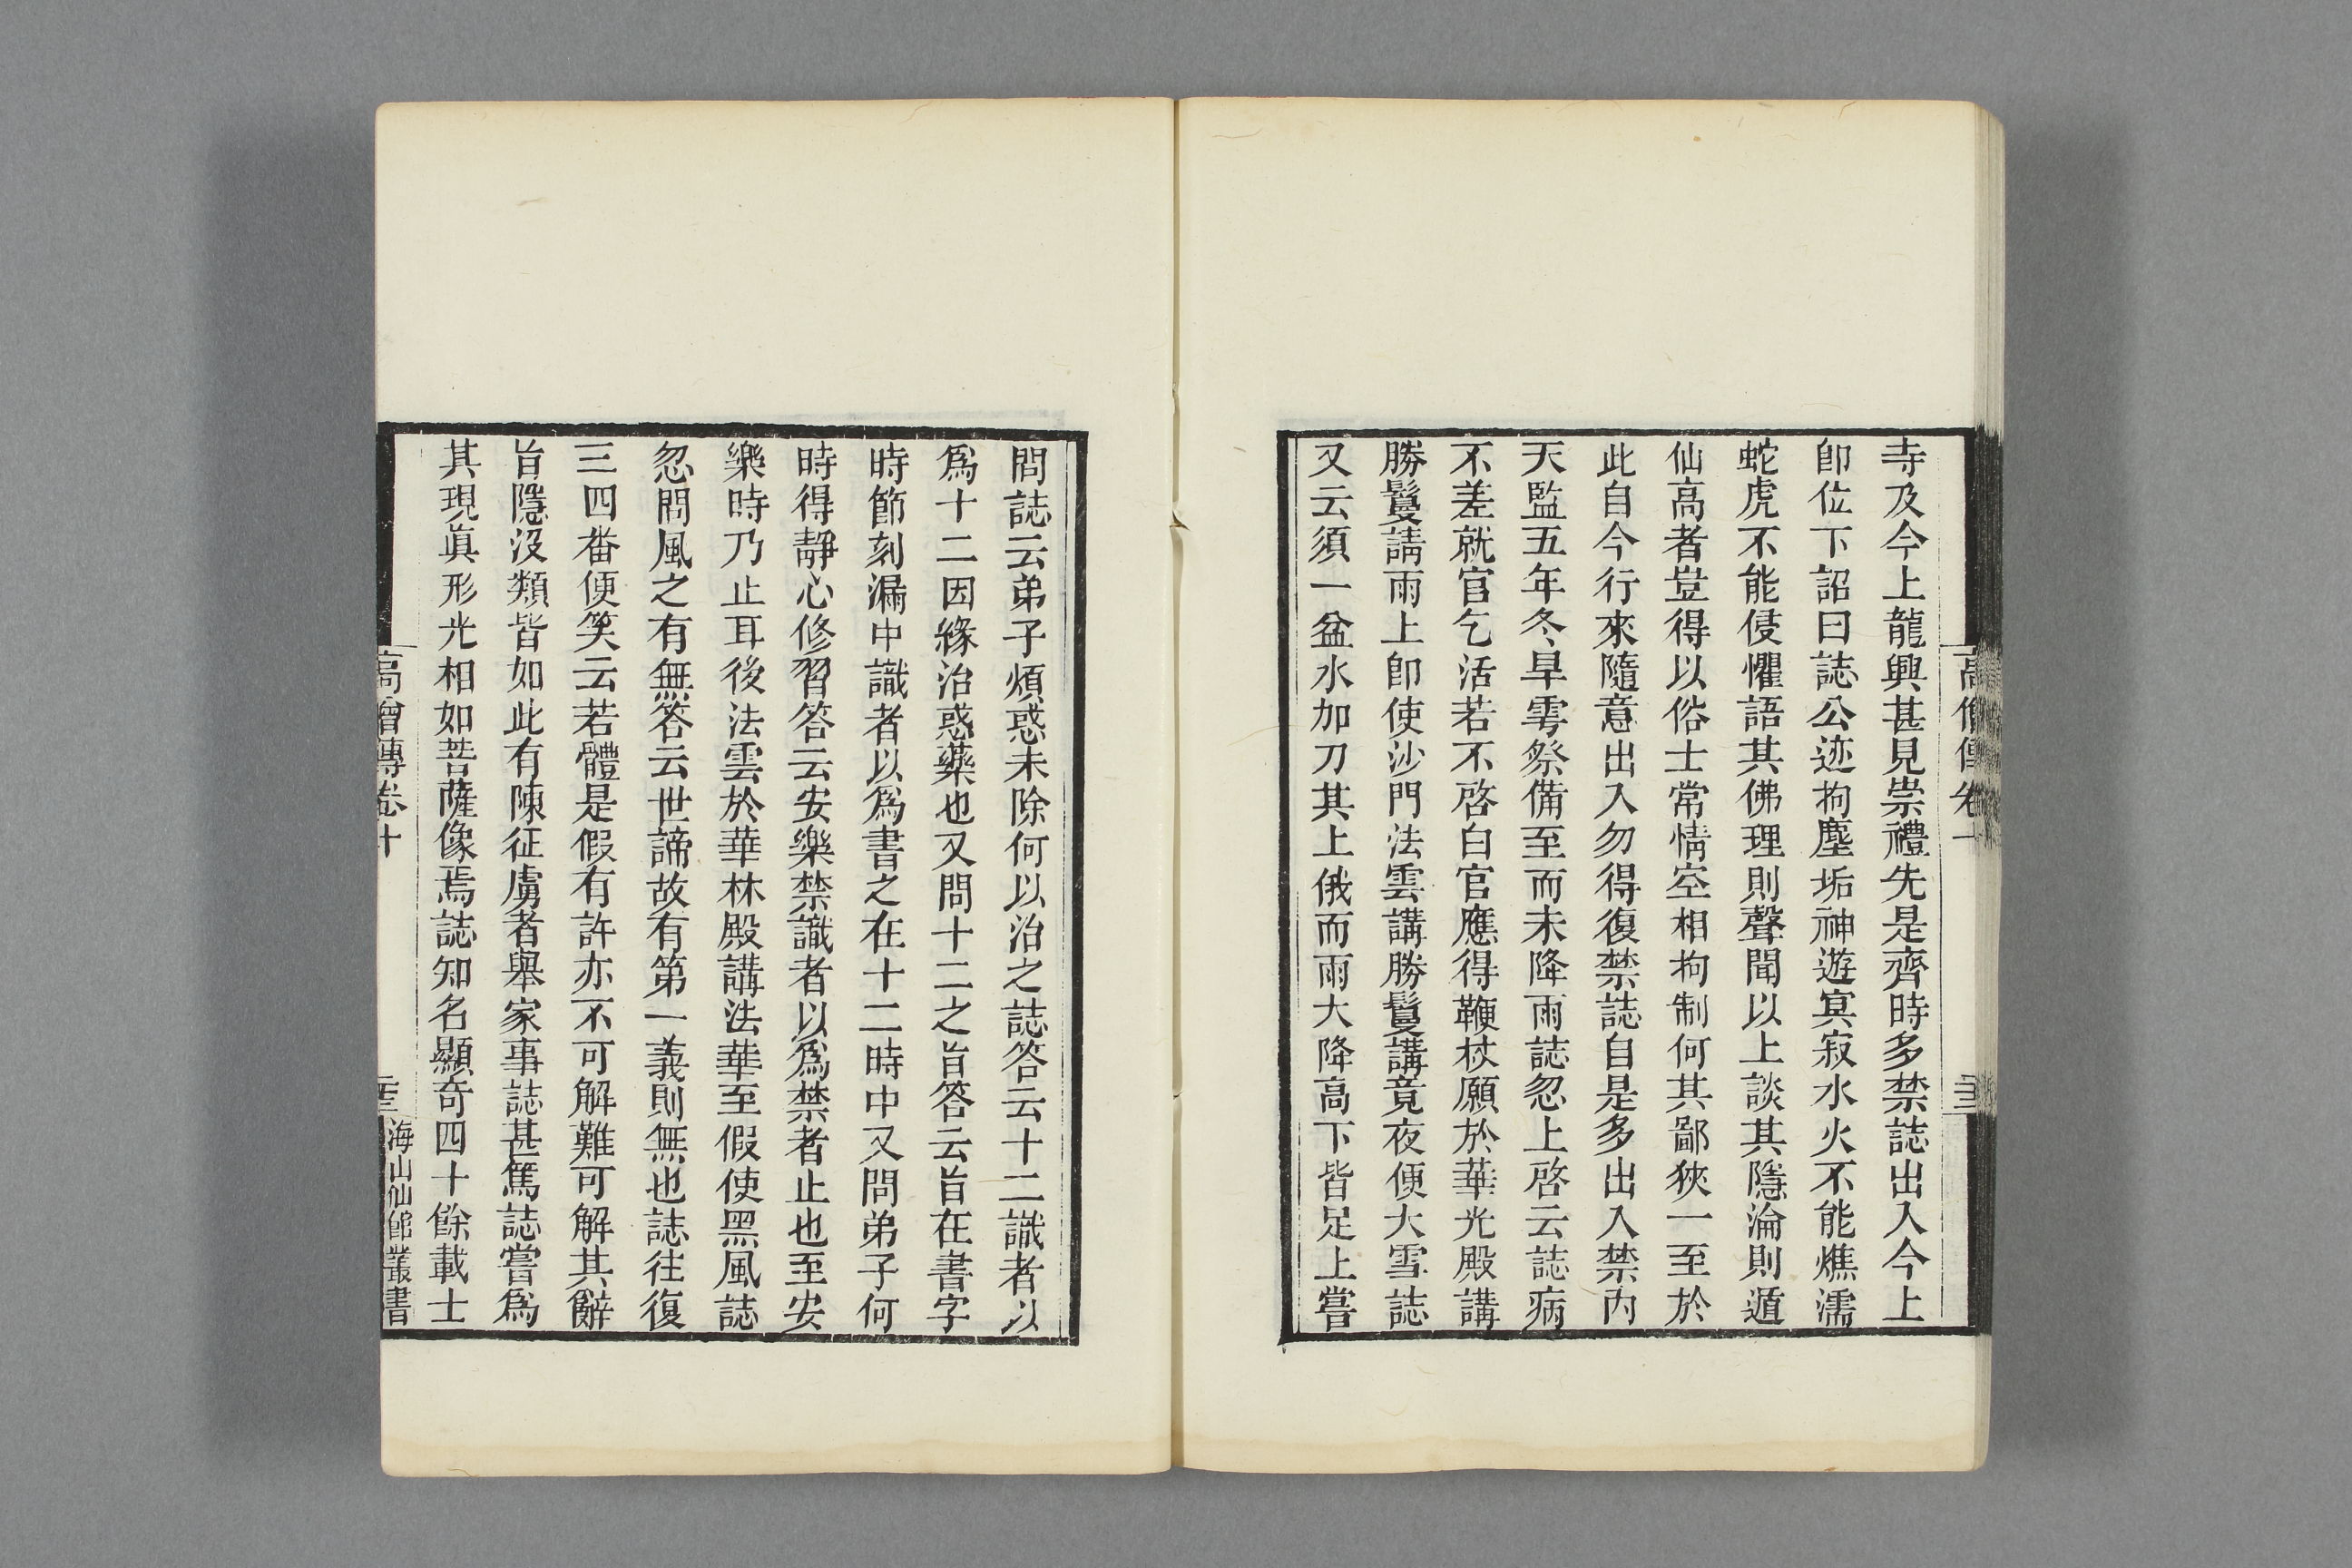 高僧傳卷十
寺及今上龍興甚見崇禮先是齊時多禁誌出入今上
卽位下詔曰誌公迹拘塵垢神遊冥寂水火不能燋濡
蛇虎不能侵懼語其佛理則聲聞以上談其隱淪則遁
仙高者豈得以俗士常情空相拘制何其鄙狹一至於
此自今行來隨意出入勿得復禁誌自是多出入禁內
天監五年冬旱雩祭備至而未降雨誌忽上啓云誌病
不差就官乞活若不啓白官應得鞭杖願於華光殿講
勝鬘請雨上卽使沙門法雲講勝鬘講竟夜便大雪誌
又云須一盆水加刀其上俄而雨大降高下皆足上嘗
問誌云弟子煩惑未除何以治之誌答云十二識者以
爲十二因緣治惑藥也又問十二之旨答云旨在書字
時節刻漏中識者以爲書之在十二時中又問弟子何
時得靜心修習答云安樂禁識者以爲禁者止也至安
樂時乃止耳後法雲於華林殿講法華至假使黑風誌
忽問風之有無答云世諦故有第一義則無也誌往復
三四番便笑云若體是假有許亦不可解難可解其辭
旨隱沒類皆如此有陳征虜者舉家事誌甚篤誌嘗爲
其現眞形光相如菩薩像焉誌知名顯奇四十餘載士
高僧傳卷十
海山仙館叢書